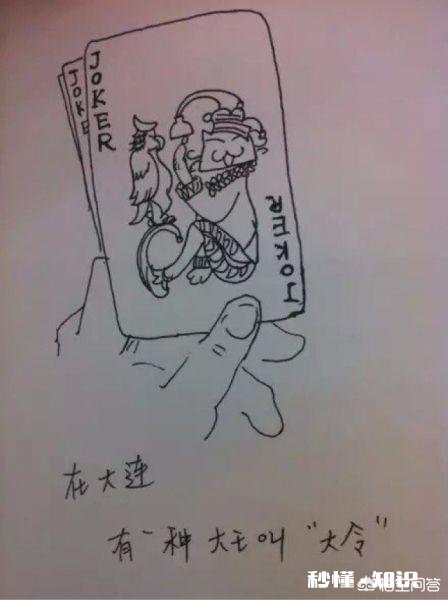 JOKER
JOKER
JOKER
在大连
有一种大王叫“大令”
秒懂·知识
悟空问答